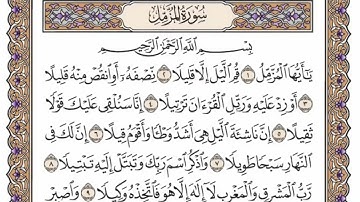 سُورَةُ المُزَّمِّلِ
بِسْمِ اللَّهِ الرَّحْمَٰنِ الرَّحِيمِ
يَٰٓأَيُّهَا ٱلْمُزَّمِّلُ ١ قُمِ ٱلَّيْلَ إِلَّا قَلِيلًا ٢ نِّصْفَهُۥٓ أَوِ ٱنقُصْ مِنْهُ قَلِيلًا
٣ أَوْ زِدْ عَلَيْهِ وَرَتِّلِ ٱلْقُرْءَانَ تَرْتِيلًا ٤ إِنَّا سَنُلْقِى عَلَيْكَ قَوْلًا
ثَقِيلًا ٥ إِنَّ نَاشِئَةَ ٱلَّيْلِ هِىَ أَشَدُّ وَطْـًٔا وَأَقْوَمُ قِيلًا ٦ إِنَّ لَكَ فِى
ٱلنَّهَارِ سَبْحًا طَوِيلًا ٧ وَٱذْكُرِ ٱسْمَ رَبِّكَ وَتَبَتَّلْ إِلَيْهِ تَبْتِيلًا ٨
رَّبُّ ٱلْمَشْرِقِ وَٱلْمَغْرِبِ لَآ إِلَٰهَ إِلَّا هُوَ فَٱتَّخِذْهُ وَكِيلًا ٩ وَٱصْبِرْ